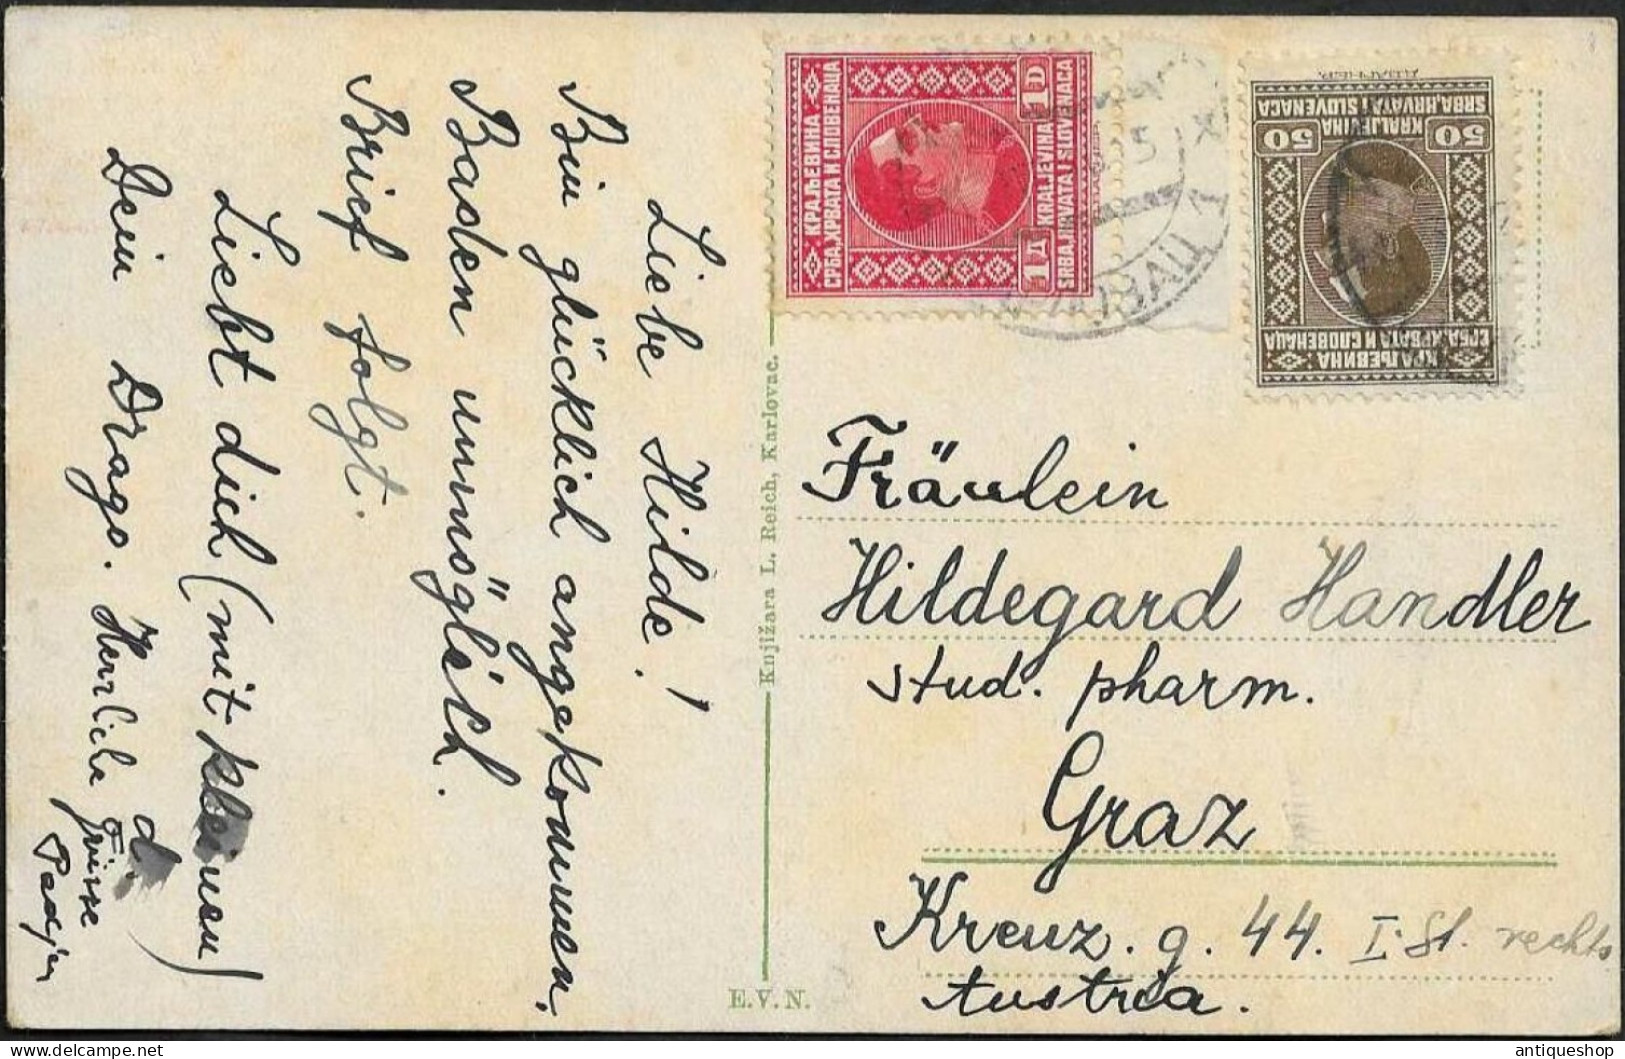 Liebe Hilde!
Bin glücklich angekommen.
Baden unmöglich.
Brief folgt.
Liebt dich (mit kleinen d)
Dein Drago. Herrliche Grüsse
Knjižara L. Reich, Karlovac.
E.V.N.
КРАЉЕВИНА
СРБА, ХРВАТА И СЛОВЕНАЦА
1Д 1D
KRALJEVINA
SRBA, HRVATA I SLOVENACA
KRALJEVINA
SRBA, HRVATA I SLOVENACA
50 50
КРАЉЕВИНА
СРБА, ХРВАТА И СЛОВЕНАЦА
Fräulein
Hildegard Handler
stud. pharm.
Graz
Kreuz. g. 44. I. St. rechts
Austria.
antiqueshop